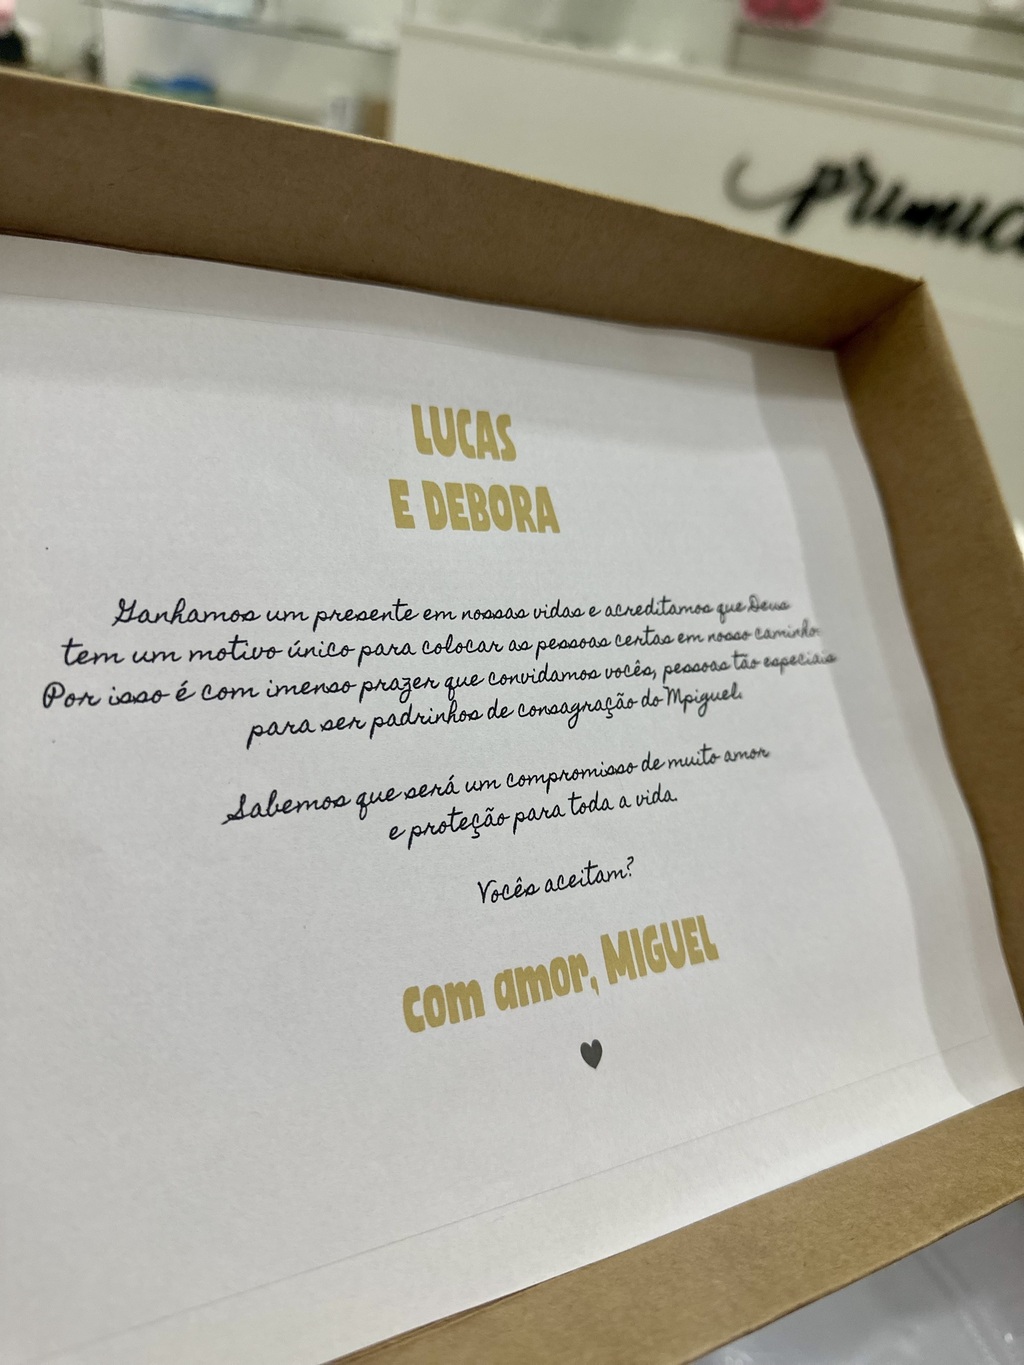 primic
LUCAS
E DEBORA
Ganhamos um presente em nossas vidas e acreditamos que Deus
tem um motivo único para colocar as pessoas certas em nosso caminho.
Por isso é com imenso prazer que convidamos vocês, pessoas tão especiais
para ser padrinhos de consagração do Mpiguel.
Sabemos que será um compromisso de muito amor
e proteção para toda a vida.
Vocês aceitam?
com amor, MIGUEL